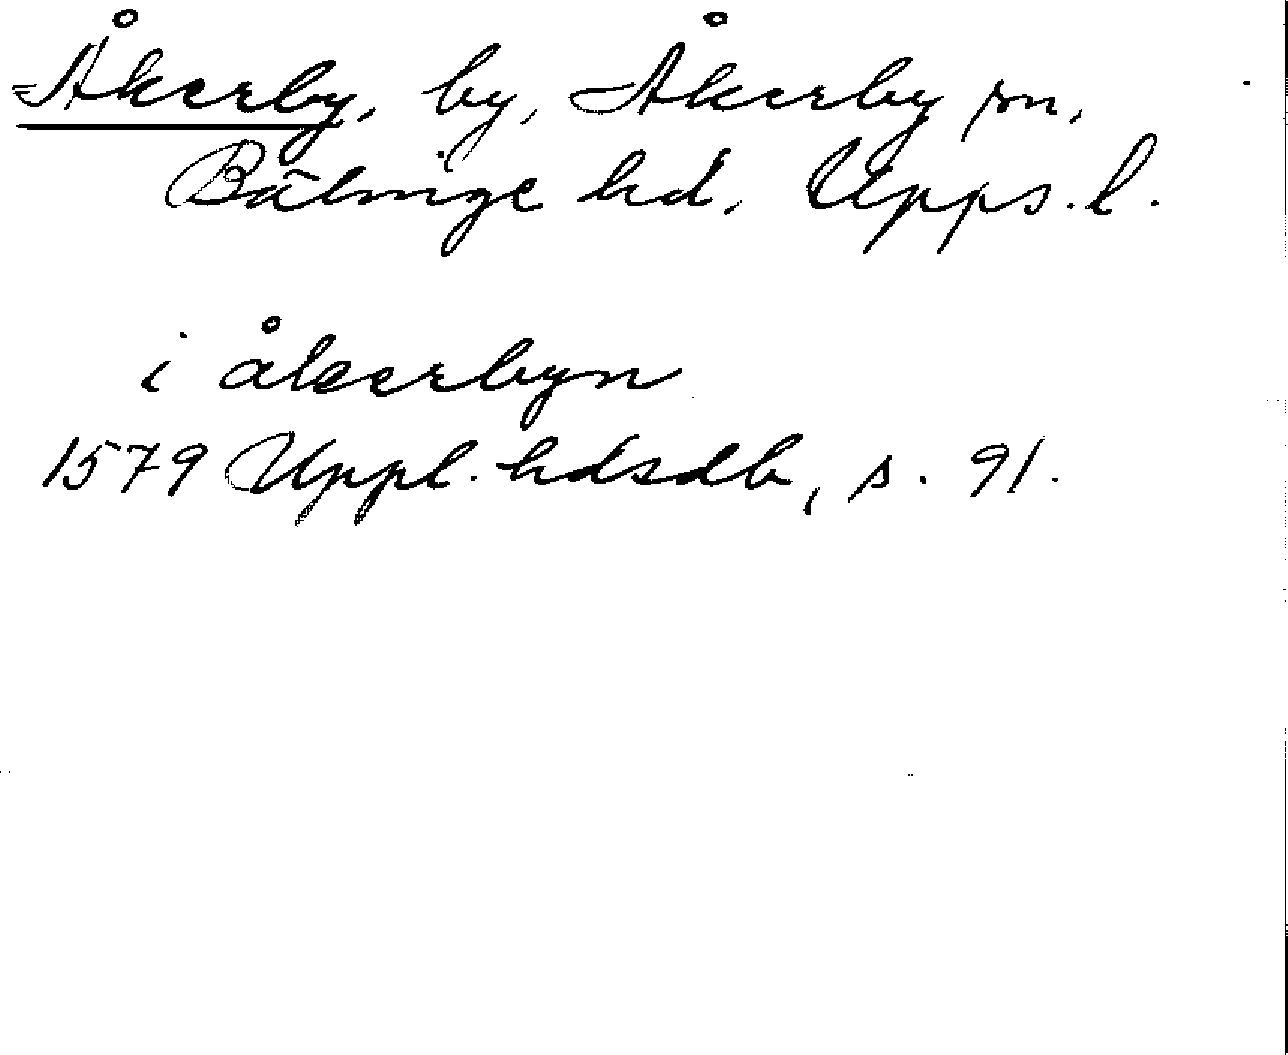 Åkerby, by, Åkerby sn,
Bälinge hd, Upps. l.
i åkerbyn
1579 Uppl. hdsdb, s. 91.